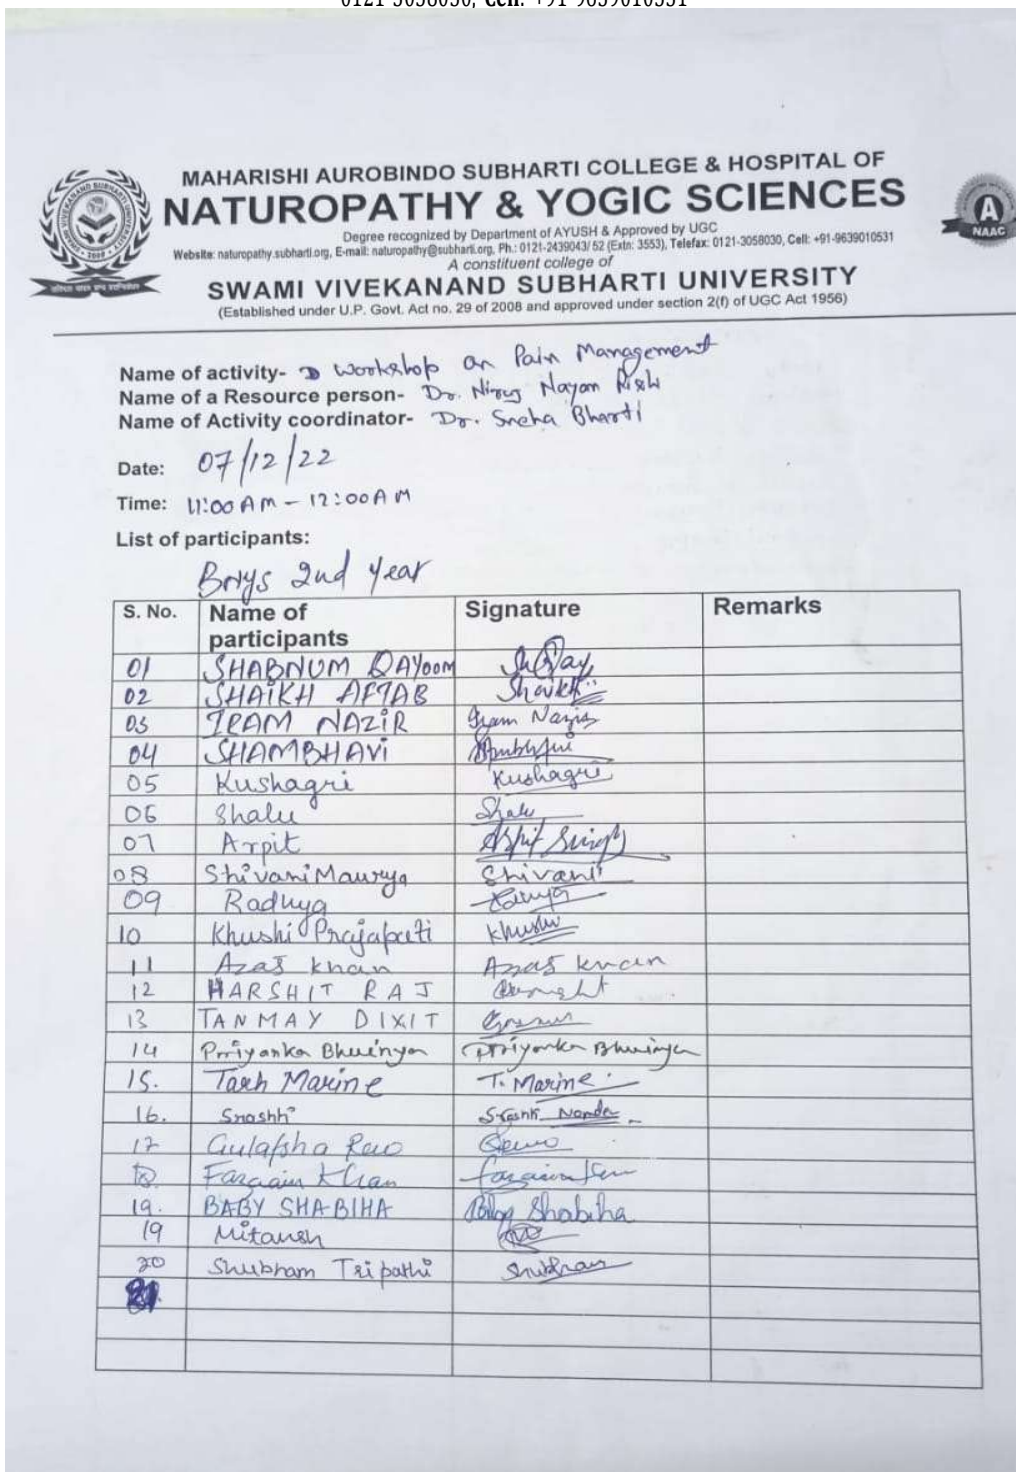 0121-3058030, Cell: +91-9639010531
MAHARISHI AUROBINDO SUBHARTI COLLEGE & HOSPITAL OF
NATUROPATHY & YOGIC SCIENCES
Degree recognized by Department of AYUSH & Approved by UGC
Website: naturopathy.subharti.org, E-mail: naturopathy@subharti.org, Ph.: 0121-2439043/ 52 (Extn: 3553), Telefax: 0121-3058030, Cell: +91-9639010531
A constituent college of
SWAMI VIVEKANAND SUBHARTI UNIVERSITY
(Established under U.P. Govt. Act no. 29 of 2008 and approved under section 2(f) of UGC Act 1956)
A
NAAC
Name of activity- Workshop on Pain Management
Name of a Resource person- Dr. Niruj Nayan Rishi
Name of Activity coordinator- Dr. Sneha Bharti
Date: 07/12/22
Time: 11:00 AM - 12:00 AM
List of participants:
Bnys 2nd year
S. No. Name of participants Signature Remarks
01 SHABNUM QAYOOM
02 SHAIKH AFTAB Shaikh
03 IRAM NAZIR Iram Nazir
04 SHAMBHAVI
05 Kushagri Kushagri
06 Shalu Shalu
07 Arpit Arpit Singh
08 Shivani Maurya Shivani
09 Radhya
10 Khushi Prajapati Khushi
11 Azaz khan Azaz khan
12 HARSHIT RAJ
13 TANMAY DIXIT
14 Prriyanka Bhuinya Prriyanka Bhuinya
15. Tarh Marine T. Marine
16. Srashti Srashti Nanda
17 Gulafsha Rao
18. Fargain Khan
19. BABY SHABIHA Baby Shabiha
19 Mitansh
20 Shubham Tripathi Shubham
21